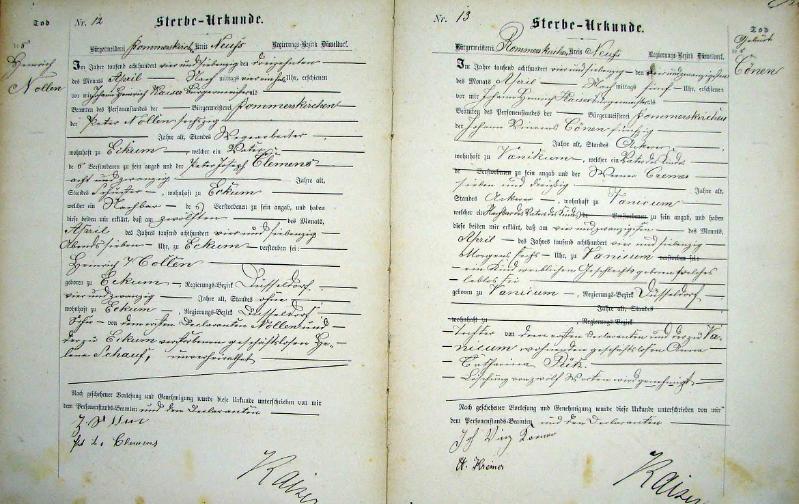 Tod
Heinrich
Nollen
Nr. 12
Sterbe-Urkunde.
Bürgermeisterei Rommerskirchen Kreis Neuß Regierungs-Bezirk Düsseldorf.
Im Jahre tausend achthundert vier und siebenzig den dreizehnten
des Monats April Nach mittags vier Uhr, erschienen
vor mir Johann Heinrich Kaiser Bürgermeister als
Beamten des Personenstandes der Bürgermeisterei Rommerskirchen
der Peter Nollen sechszig
Jahre alt, Standes Wegearbeiter
wohnhaft zu Eckum welcher ein Vater
de s Verstorbenen zu sein angab und der Peter Joseph Clemens
acht und zwanzig Jahre alt,
Standes Schuster, wohnhaft zu Eckum
welcher ein Nachbar de s Verstorbenen zu sein angab, und haben
diese beiden mir erklärt, daß am zwölften des Monats,
April des Jahres tausend achthundert vier und siebenzig
Abends sieben Uhr, zu Eckum verstorben sei:
Heinrich Nollen
geboren zu Eckum Regierungs-Bezirk Düsseldorf
vier und zwanzig Jahre alt, Standes ohne
wohnhaft zu Eckum, Regierungs-Bezirk Düsseldorf
Sohn von dem ersten Declaranten Nollen und
der zu Eckum verstorbenen geschäftslosen He-
lena Schauf, unverheirathet
Nach geschehener Vorlesung und Genehmigung wurde diese Urkunde unterschrieben von mir
dem Personenstands-Beamten und den Declaranten
Clemens
Kaiser
Nr. 13
Sterbe-Urkunde.
Tod
Geburt
Cönen
Bürgermeisterei Rommerskirchen Kreis Neuß Regierungs-Bezirk Düsseldorf.
Im Jahre tausend achthundert vier und siebenzig den vier und zwanzigsten
des Monats April Nach mittags fünf Uhr, erschienen
vor mir Johann Heinrich Kaiser Bürgermeister als
Beamten des Personenstandes der Bürgermeisterei Rommerskirchen
der Johann Cönen fünfzig
Jahre alt, Standes Ackerer
wohnhaft zu Vanikum, welcher ein Vater des Kindes
de Verstorbenen zu sein angab und der Werner Cremer
sieben und dreißig Jahre alt,
Standes Ackerer, wohnhaft zu Vanicum
welcher ein Nachbar des Vaters des Kindes Verstorbenen zu sein angab, und haben
diese beiden mir erklärt, daß am vier und zwanzigsten des Monats
April des Jahres tausend achthundert vier und siebenzig
Morgens sechs Uhr, zu Vanicum verstorben sei:
ein Kind weiblichen Geschlechts geboren welches
leblos sei
geboren zu Vanicum, Regierungs-Bezirk Düsseldorf
Jahre alt, Standes
wohnhaft zu Regierungs-Bezirk
Tochter von dem ersten Declaranten und der zu Va-
nicum wohnenden geschäftslosen Anna
Catharina
Löschung von zwölf Worten wird genehmigt
Nach geschehener Vorlesung und Genehmigung wurde diese Urkunde unterschrieben von mir
dem Personenstands-Beamten und den Declaranten
Kaiser